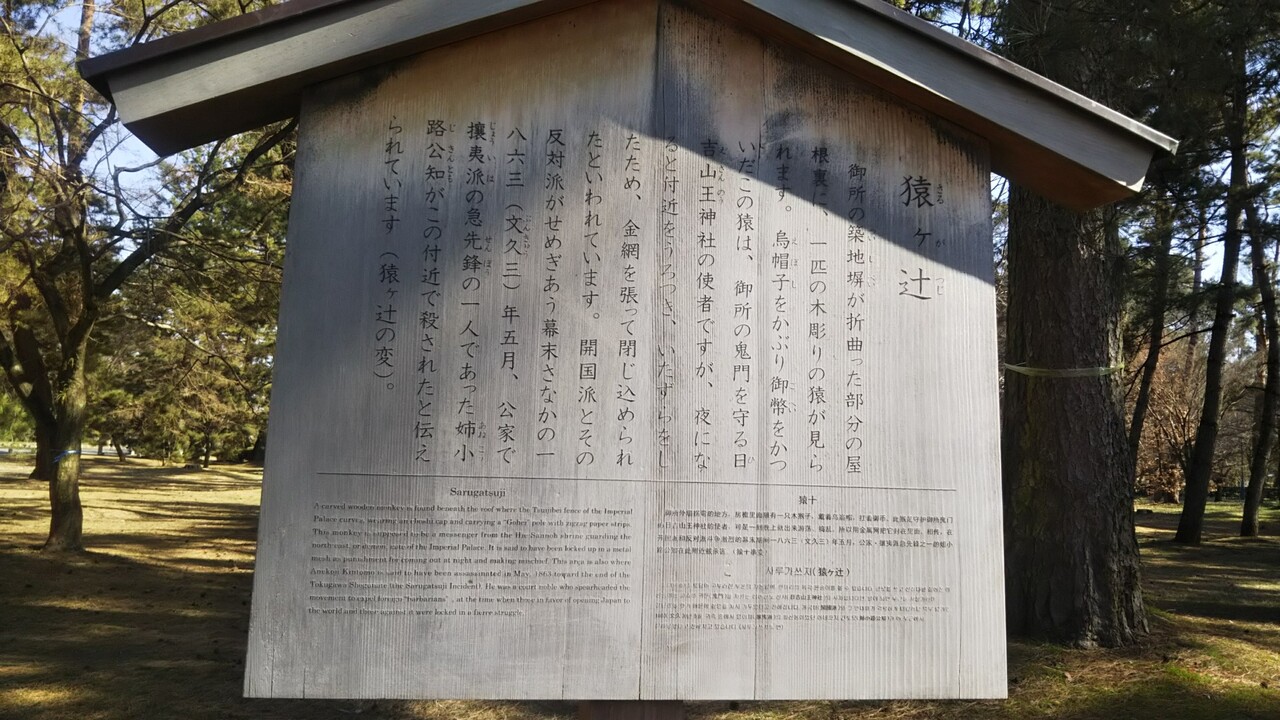 猿ヶ辻
御所の築地塀が折曲った部分の屋
根裏に、一匹の木彫りの猿が見ら
れます。烏帽子をかぶり御幣をかつ
いだこの猿は、御所の鬼門を守る日
吉山王神社の使者ですが、夜にな
ると付近をうろつき、いたずらをし
たため、金網を張って閉じ込められ
たといわれています。開国派とその
反対派がせめぎあう幕末さなかの一
八六三(文久三)年五月、公家で
攘夷派の急先鋒の一人であった姉小
路公知がこの付近で殺されたと伝え
られています(猿ヶ辻の変)。
Sarugatsuji
A carved wooden monkey is found beneath the roof where the Tsuijibei fence of the Imperial
Palace curves, wearing an eboshi cap and carrying a "Gohei" pole with zigzag paper strips.
This monkey is supposed to be a messenger from the Hie-Sannoh shrine guarding the
northeast, or demon, gate of the Imperial Palace. It is said to have been locked up in a metal
mesh as punishment for coming out at night and making mischief. This area is also where
Anekio Kintomo is said to have been assassinated in May, 1863 toward the end of the
Tokugawa Shogunate (the Sarugatsuji Incident). He was a court noble who spearheaded the
movement to expel foreign "barbarians", at the time when those in favor of opening Japan to
the world and those against it were locked in a fierce struggle.
猿十
사루가쓰지(猿ヶ辻)